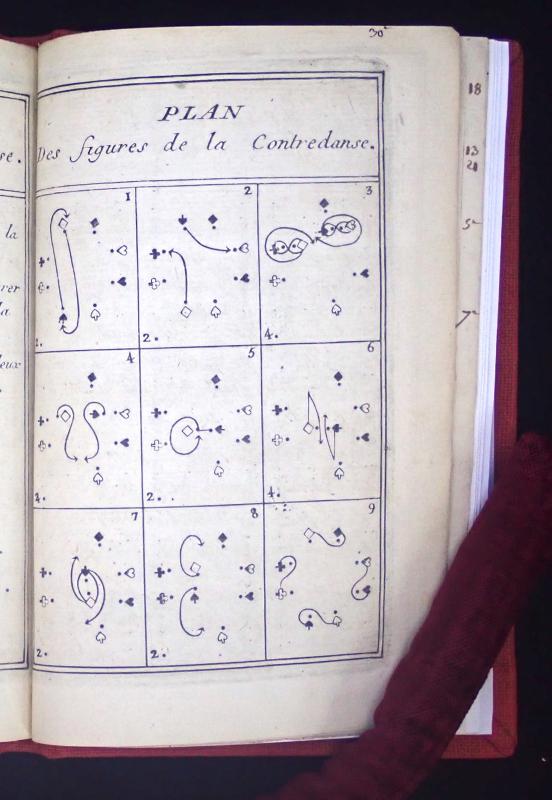 30
PLAN
Des figures de la Contredanse.
1
2
3
1.
2.
4.
4
5
6
2.
4.
7
8
9
2.
2.
se.
la
rer
la
deux
18
13
21
5
7